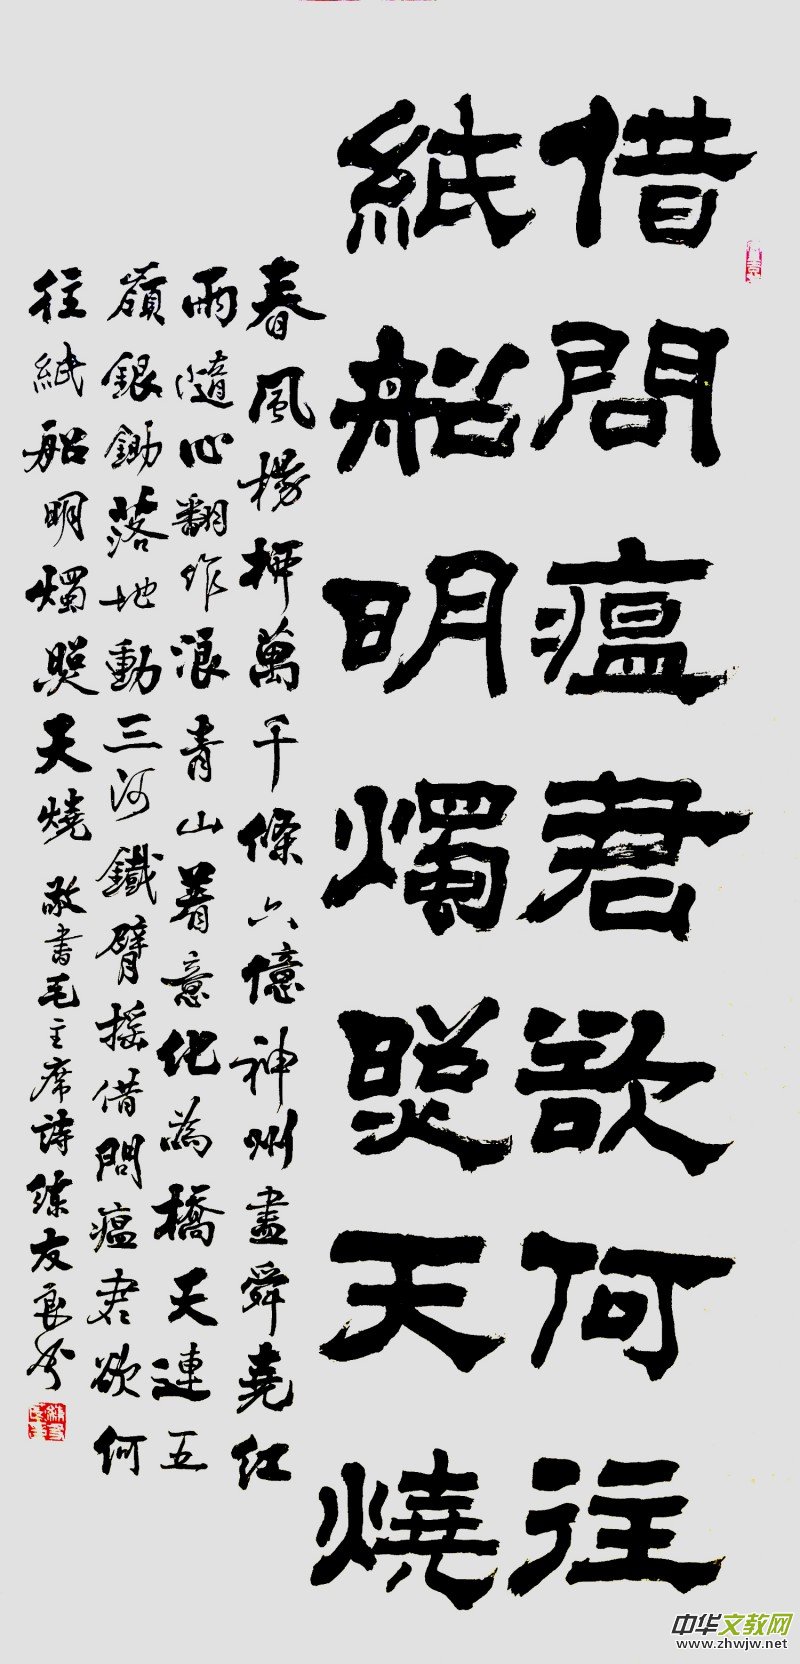 借問瘟君欲何往
紙船明燭照天燒
春風楊柳萬千條六億神州盡舜堯紅
雨隨心翻作浪青山着意化為橋天連五
嶺銀鋤落地動三河鐵臂搖借問瘟君欲何
往紙船明燭照天燒 敬書毛主席詩 練友良
中华文教网
www.zhwjw.net